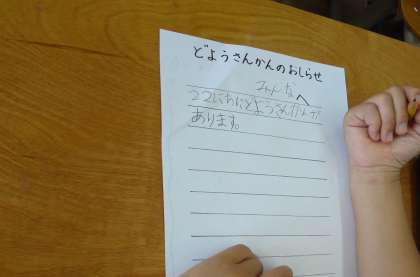 どようさんかんのおしらせ
みんなへ
22にちにどようさんかんが
あります。